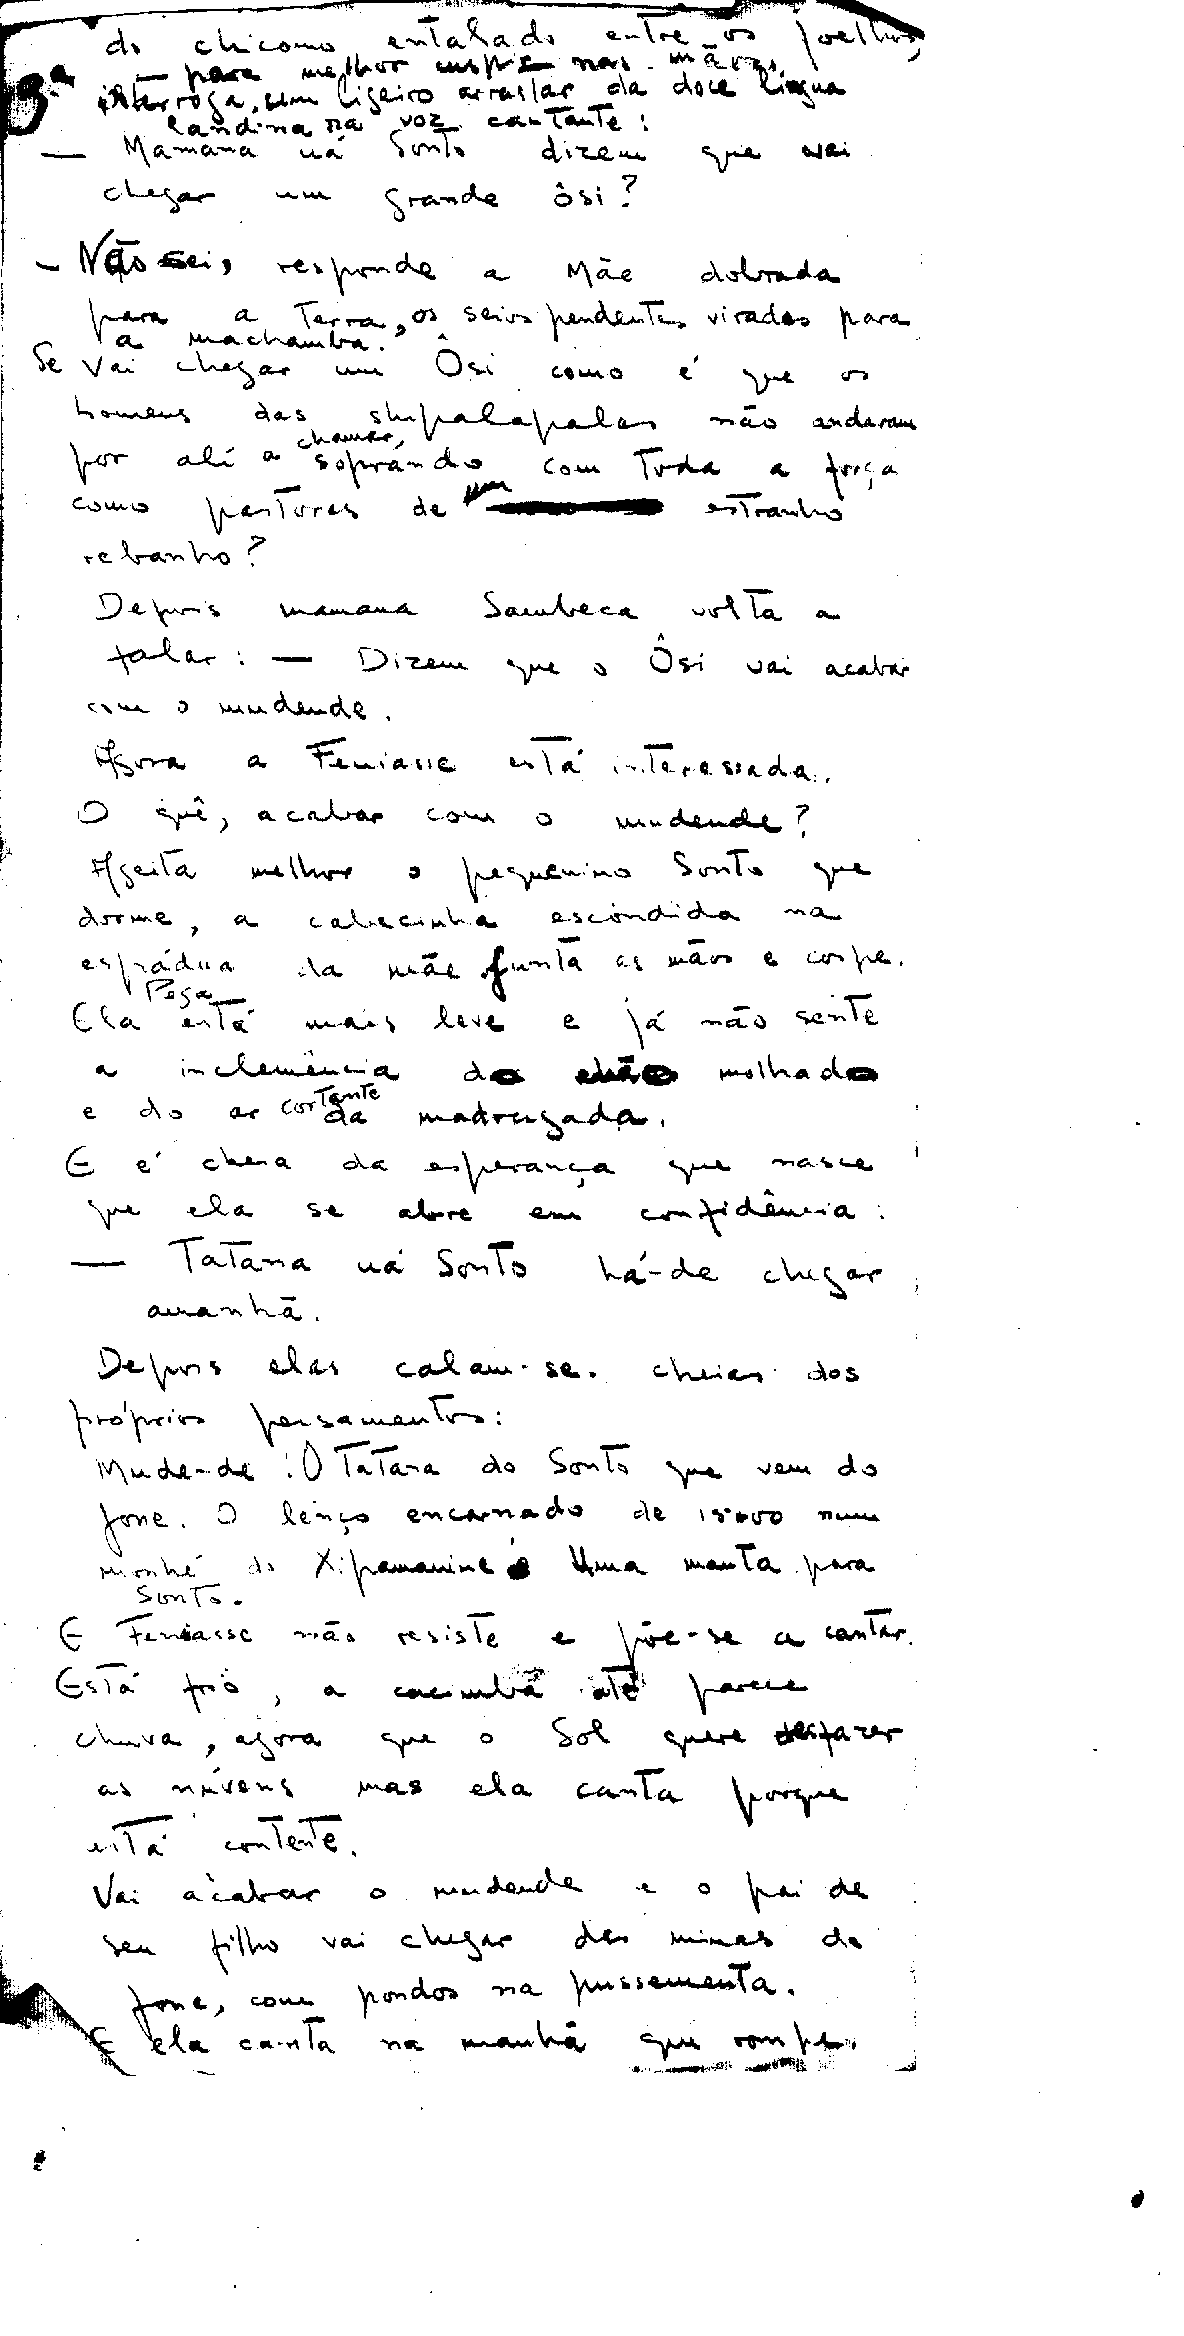 do chicomo entalado entre os joelhos,
3ª
— para melhor cuspir nas mãos,
interroga, um ligeiro arrastar da doce língua
landina na voz cantante:
— Mamana uá Sonto dizem que vai
chegar um grande Ôsi?
— Não sei, responde a Mãe dobrada
para a terra, os seios pendentes virados para
a machamba.
Se vai chegar um Ôsi como é que os
homens das shipalapalas não andaram
por ali a chamar, soprando com toda a força
como pastores de um estranho
rebanho?
Depois mamana Sambeca volta a
falar: — Dizem que o Ôsi vai acabar
com o mudende.
Agora a Feniasse está interessada.
O quê, acabar com o mudende?
Ageita melhor o pequenino Sonto que
dorme, a cabecinha escondida na
espádua da mãe junta as mãos e cospe.
Pega
Ela está mais leve e já não sente
a inclemência do chão molhado
e do ar cortante da madrugada.
E é cheia da esperança que nasce
que ela se abre em confidência:
— Tatana uá Sonto há-de chegar
amanhã.
Depois elas calam-se. cheias dos
próprios pensamentos:
Mude-de! O Tatana do Sonto que vem do
Jone. O lenço encarnado de 15$00 num
monhé do Xipamanine. Uma manta para
Sonto.
E Feniasse não resiste e põe-se a cantar.
Está frio, a cacimba até parece
chuva, agora que o Sol quere desfazer
as núvens mas ela canta porque
está contente.
Vai acabar o mudende e o pai de
seu filho vai chegar das minas do
Jone, com pondos na pussementa.
E ela canta na manhã que rompe.